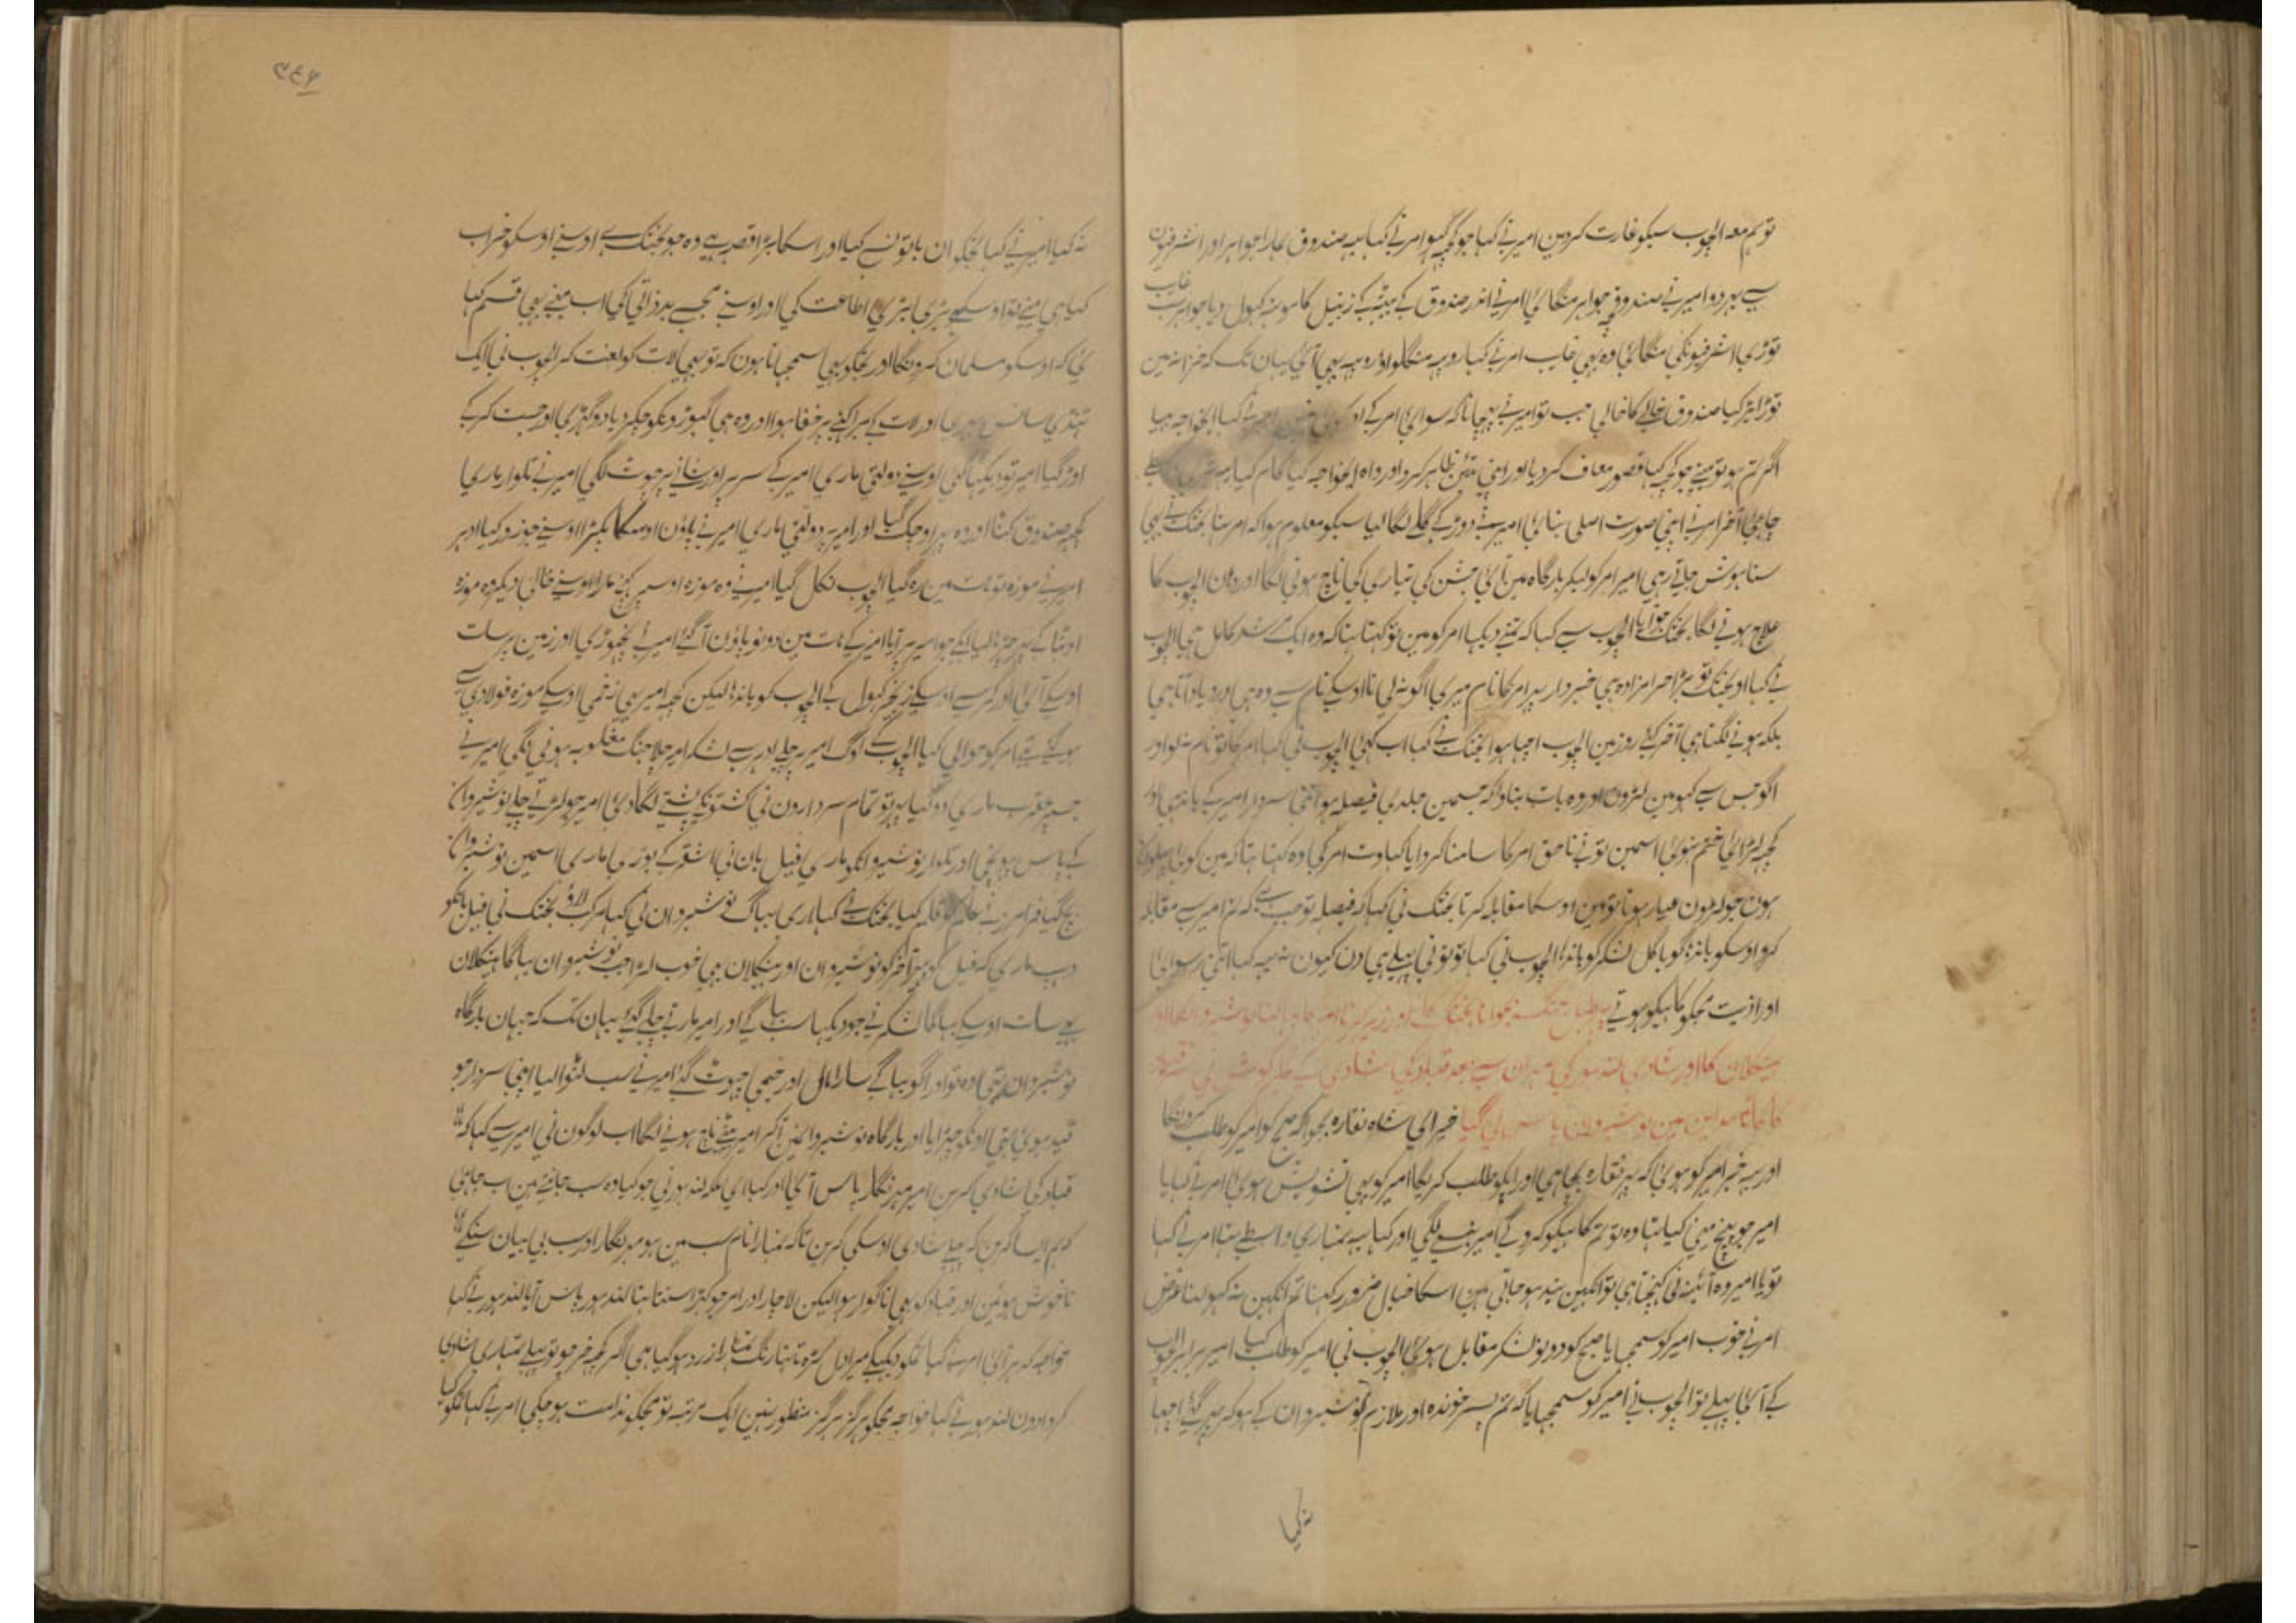 توہم معہ الجوب سبکو غارت کردین امیرنے کہا جو کچہ کہو امرنے کہا یہہ صندوق ہمارا جواہر اور اشرفیون
سے بہر دو امیرنے صندوقچہ جواہر منگائی امرنے اندر صندوق کے بیٹہکے زنبیل کا مونہ کہول دیا جواہر سب غایب
توڑی اشرفیونکی منگائی وہ بہی غایب امرنے کہا روپیہ منگواؤ روپیہ بہی آئی یہان تک کہ خزانہ مین
توڑا بہر کیا صندوق خالی کا خالی جب تو امیرنے پہچانا کہ سوای امر کے اور کوئی نہین امیرنے کہا ای خواجہ بہیا
اگر تم ہو تو مینے جو کچہ کہا قصور معاف کردیا اور اپنی تئین ظاہر کرو اور واہ ای خواجہ کیا کام کیا
چاہئی آخر امرنے اپنی صورت اصلی بنائی امیرنے دوڑ کے گلے لگا لیا سبکو معلوم ہوا کہ امر تہا بختک نے بہی
سنا ہوش جاتے رہی امیر امر کو لیکر بارگاہ مین آئی جشن کی تیاری کی ناچ ہونی لگا اور وہان الجوب کا
علاج ہونے لگا بختک نے الجوب سے کہا کہ تمنے دیکہا امر کو مین نہ کہتا تہا کہ وہ ایک مرشد کامل ہی الجوب
نے کہا او بختک تو بڑا حرامزادہ ہی خبردار پہر امر کا نام میری آگو نہ لی نا اوسکے نام سے وہ ہی درد یاد آتا ہی
بلکہ ہونے لگتا ہی آخر کئی روز مین الجوب اچہا ہوا بختک نے کہا اب کہئی الجوب نی کہا امر کا تو نام نہ لو اور
آگو جس سے کہو مین لڑون اور وہ بات بتاؤ کہ جسمین جلدی فیصلہ ہو اتنی سردار امیر کے باندہی اور
کچہ لڑائی ختم نہوئی اسمین تو نے ناحق امر کا سامنا کروایا کہا وت امر کی وہ کہتا تہا کہ مین کوئی پہلوان
ہون جو لڑون عیار ہوتا تو مین اوسکا مقابلہ کرتا بختک نی کہا کہ فیصلہ تو جب ہے کہ تم امیر سے مقابلہ
کرو اوسکو باندہا گویا کل لشکر کو باندہا الجوب نی کہا تو تونی پہلے ہی دن کیون نہ یہہ کہا اتنی رسوائی
اور اذیت مجکو کاہیکو ہوتے پہر طبل جنگ بجوانا بختک کا اور زیر کرنا امر کا الجوب کو اور بہاگنا نوشیروان کا اور
ہینکلان کا اور شادی لندہور کی
مداین مین نوشیروان پاس لی گیا خیر ای شاہ نقارہ بجوا کہ صبح کو امیر کو طلب کرونگا
اور یہہ خبر امیر کو ہوئی کہ یہہ نقارہ بجا ہی اور آپکو طلب کریگا امیر کو بہی تشویش ہوئی امرنے کہا یا
امیر جو پیچ مینی کیا تہا وہ تو تم کاہیکو کرو گے امیر ہنسنے لگی اور کہا یہہ تمہاری واسطے تہا امرنے کہا
تو یا امیر وہ آئینہ نی کہنچتا ہی تو آنکہین بند ہو جاتی ہین اسکا خیال ضرور رکہنا تم آنکہین نہ کہولنا غرض
امرنے خوب امیر کو سمجہایا صبح کو دونو لشکر مقابل ہوئی الجوب نی امیر کو طلب کیا امیر برابر الجوب
کے آئی پہلے تو الجوب نے امیر کو سمجہایا کہ تم پسر خوندہ اور ملازم نوشیروان کے ہو کر پہر گئے اچہا
نہ کیا
۳۴۶
نہ کیا امیرنے کہا تجکو ان باتونسے کیا اور اسکا بڑا قصہ ہے وہ جو بختک ہے اوسنے اوسکو خراب
کیا ہی مینے تو اوسکے بڑی بڑی اطاعت کی اور اوسنے مجسے بدذاتی کی اب مینے بہی قسم کہا
ئی کہ اوسکو مسلمان کرونگا اور تجکو بہی سمجہاتا ہون کہ تو بہی لات کو لعنت کر الجوب نی ایک
ٹہنڈی سانس بہری اور لات کے برا کہنے پر خفا ہوا اور وہ ہی گہوڑونکو چکر دیا دو گہڑی اور جست کرکے
اوڑ گیا امیر تو دیکہا کئی اوسنے دولتی ماری امیر کے سر پر اور شانے پر چوٹ لگی امیرنے تلوار ماری
کچہ صندوق کٹا اور وہ پہر اوچک گیا اور امیر پر دولتی ماری امیرنے پاؤن اوسکا پکڑا اوسنے جو زور کیا ادہر
امیرنے موزہ تو ہات مین رہ گیا الجوب نکل گیا امیرنے وہ موزہ اوسپر کہنچ مارا اوسنے خالی دیکر وہ موزہ
اوٹہا کے پہر چڑہا لیا ابکے جو امیر پر آیا امیر کے ہات مین دونو پاؤن آ گئے امیرنے نچہوڑی اور زمین پر سات
اوسکے آئی اور کمر سے اوسکے زنجیر کہول کے الجوب کو باندہا لیکن کچہ امیر بہی زخمی اوسکے موزہ فولادی سے
ہو گئے تہے امر کو حوالی کیا الجوب کے لوگ امیر پر چلے ادہر سے لشکر امیر چلا جنگ مغلوبہ ہونی لگی امیرنے
جسپر ضرب ماری دو کیا پہر تو تمام سردارون نی کشتونکے پشتے لگا دئی امیر جو لڑتے چلے نوشیروان
کے پاس پہونچی اور تلوار نوشیروانکو ماری فیل بان نی اشتر کے بوری ماری اسمین نوشیروان
بچ گیا فرامرزنے علم کو قلم کیا بختک نے کہا لاری بہاگ نوشیروان نی کہا مرکب لاؤ بختک نی فیلبانکو
دہپ ماری کہ فیل کو پہیر آخر کو نوشیروان اور ہینکلان بہی خوب لڑا جب نوشیروان بہاگا ہینکلان
بہی سات اوسکے بہاگا لشکرنے جو دیکہا سب بہاگے اور امیر مارتے چلے گئے یہان تک کہ جہان بارگاہ
نوشیروان تہی وہ تو اور آگو بہاگے سارا مال اور خیمی چہوٹ گئے امیرنے سب لٹوا لیا اپنی سردار جو
قید ہوئی تہی اونکو چہڑایا اور بارگاہ نوشیروانمین آکر امیر بیٹہے ناچ ہونے لگا اب لوگون نی امیر سے کہا کہ
قباد کی شادی کرین امیر مہرنگار پاس آئی اور کہا ای ملکہ لندہور نی جو کیا وہ سب جانتے ہین اب چاہئی
کہ ہم ایسا کرین کہ پہلے شادی اوسکی کرین تاکہ تمہارا نام سب مین ہو مہرنگار اور سب بی بیان سنکے
ناخوش ہوئین اور قباد کو بہی ناگوار ہوا لیکن لاچار اور امر جو کہڑا سنتا تہا لندہور پاس آیا لندہور نے کہا
خواجہ کدہر آئی امرنے کہا تمکو دیکہکے میرا دل کڑہتا تہا رنگ تمہارا زرد ہو گیا ہی اگر کچہ خرچو تو پہلے تمہاری شادی
کروا دون لندہور نے کہا خواجہ مجکو ہرگز ہرگز منظور نہین ایک مرتبہ تو مجکو ندامت ہو چکی امرنے کہا تمکو کیا